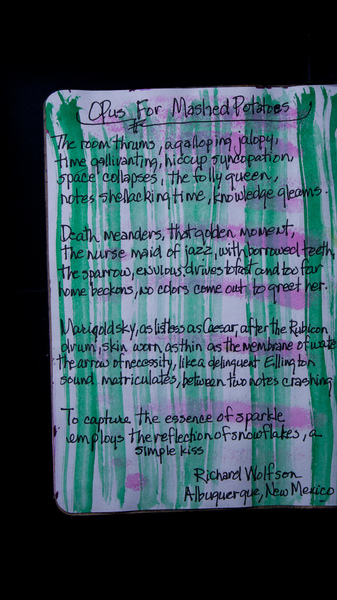 Opus For Mashed Potatoes
The room thrums, a galloping jalopy,
time gallivanting, hiccup syncopation,
space collapses, the folly queen,
notes shellacking time, knowledge gleams.
Death meanders, that golden moment,
the nurse maid of jazz, with borrowed teeth,
The sparrow, envious, drives too fast and too far
home beckons, no colors come out to greet her.
Marigold sky, as listless as Caesar, after the Rubicon
drum, skin worn as thin as the membrane of wate
the arrow of necessity, like a delinquent Ellington
sound matriculates, between two notes crashing
To capture the essence of sparkle
employs the reflection of snowflakes, a
simple kiss
Richard Wolfson
Albuquerque, New Mexico